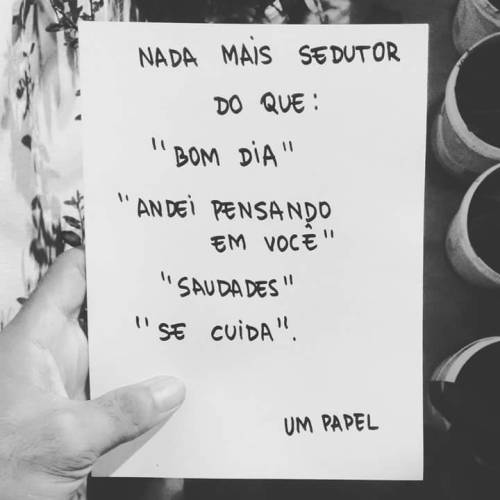 NADA MAIS SEDUTOR
DO QUE:
"BOM DIA"
"ANDEI PENSANDO
EM VOCÊ"
"SAUDADES"
"SE CUIDA".
UM PAPEL